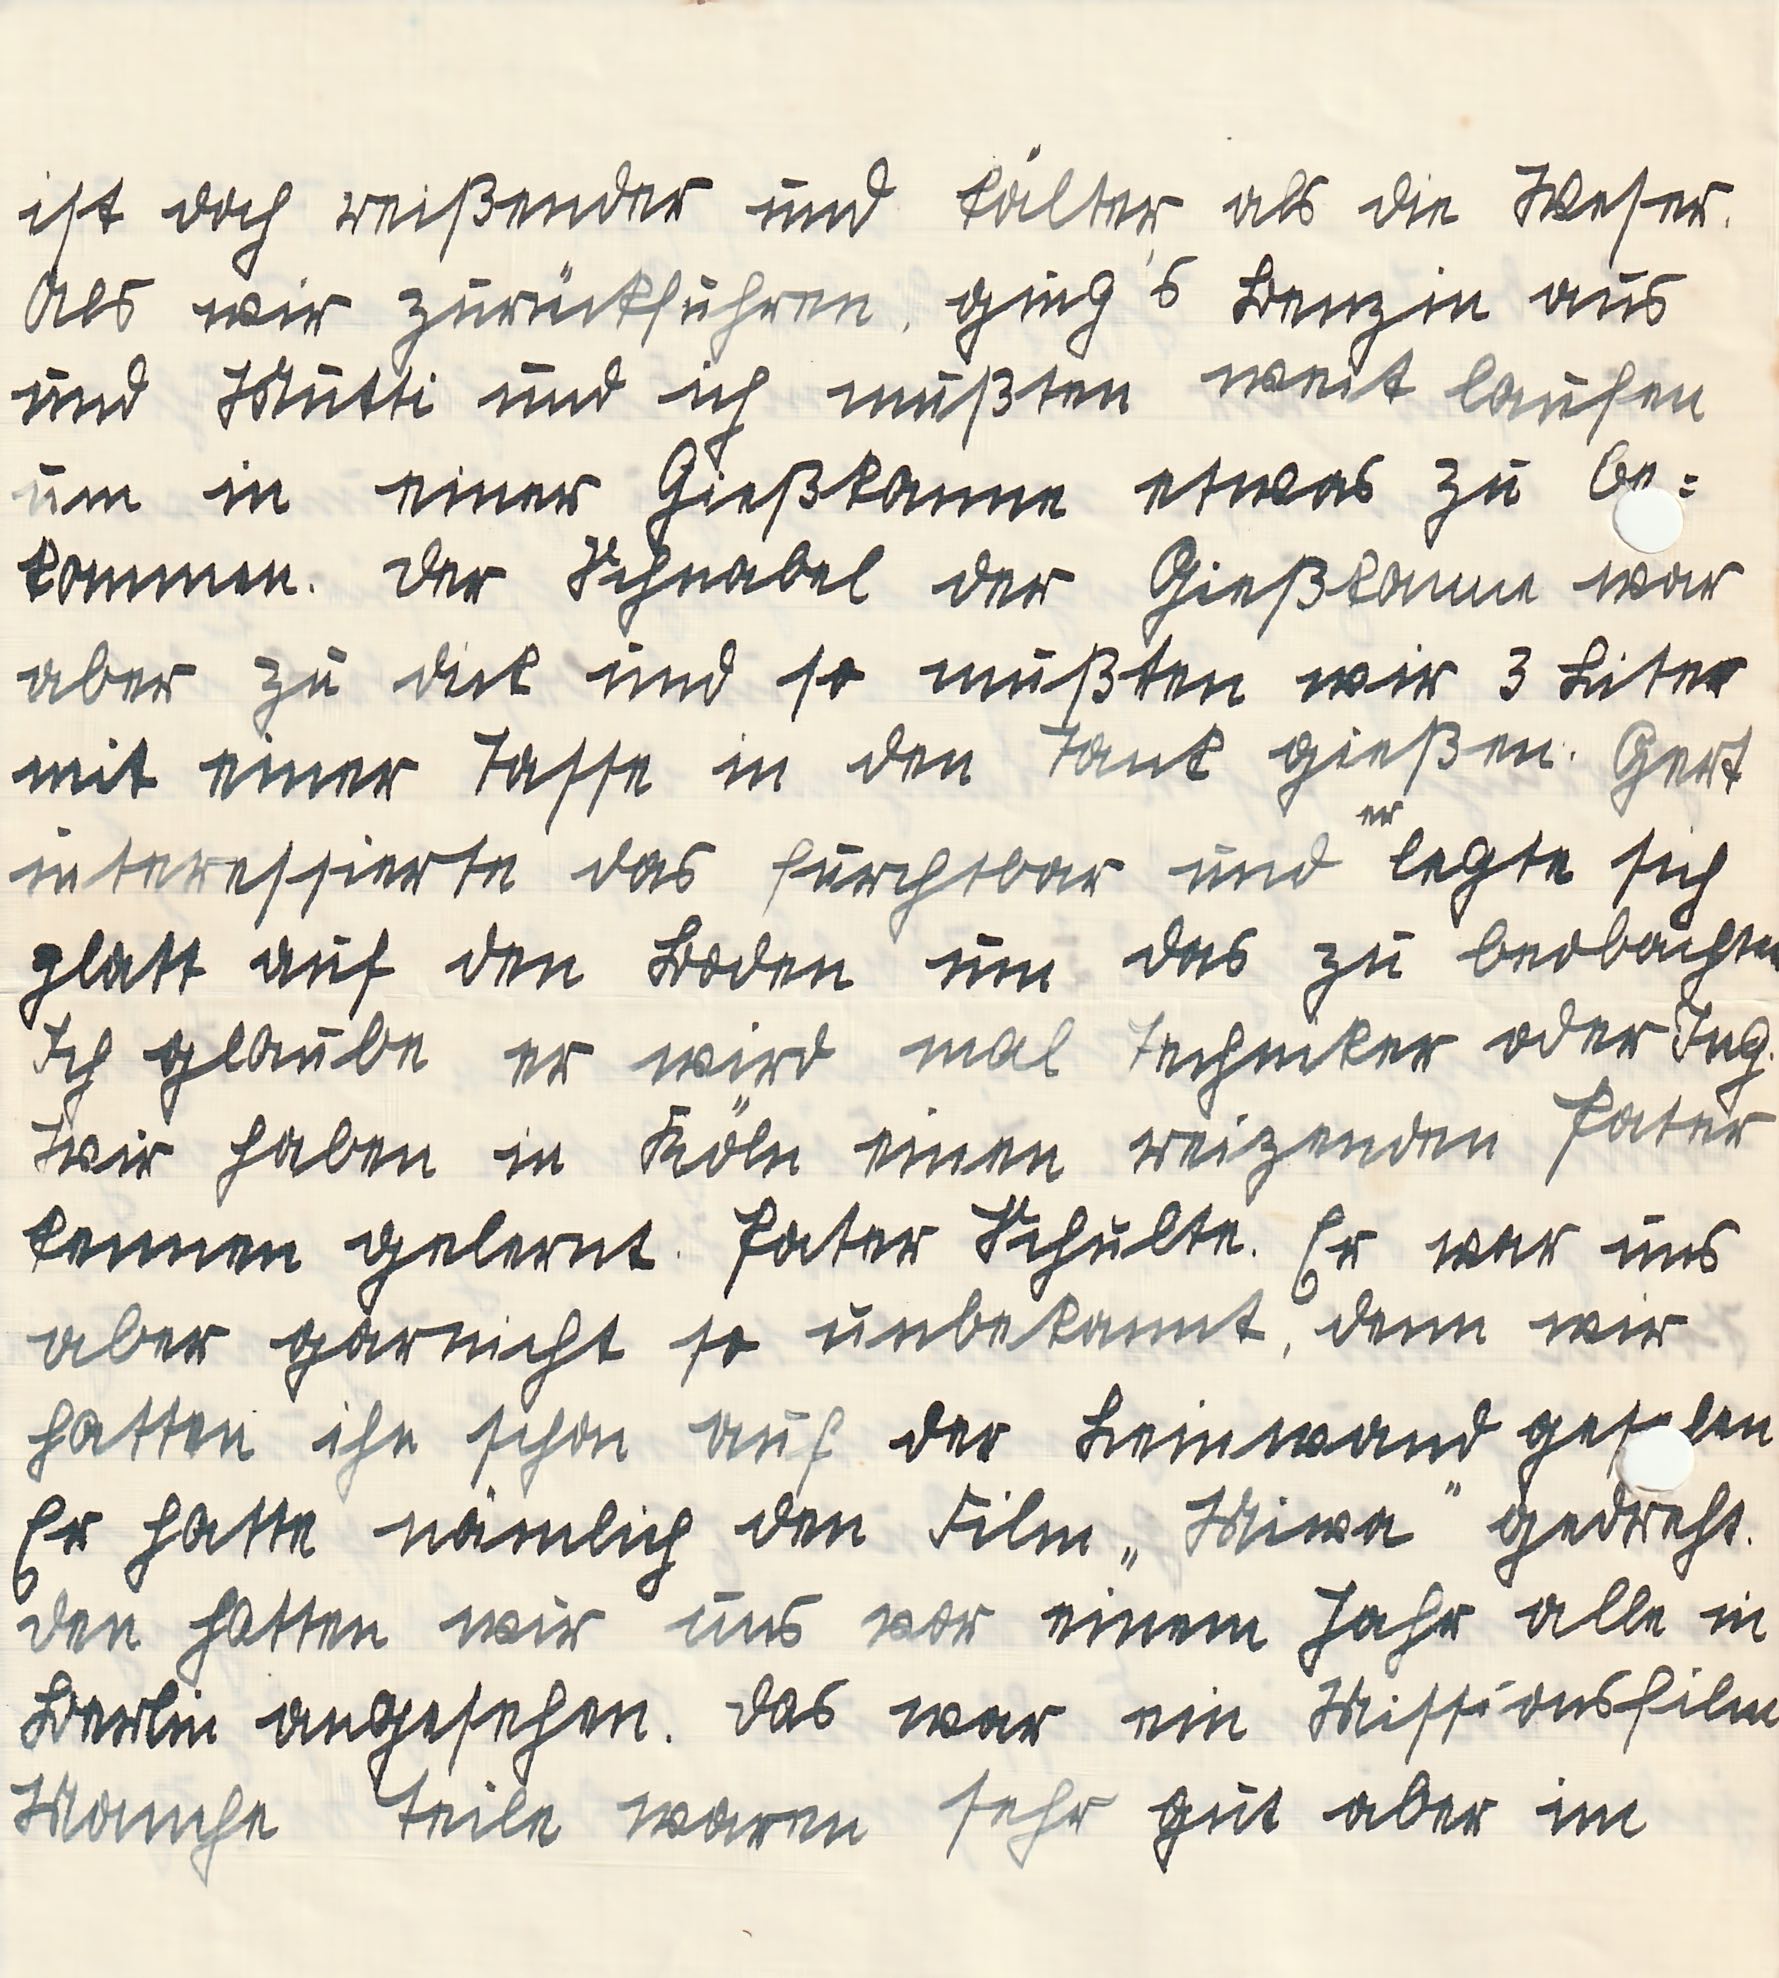 ist doch reißender und kälter als die Weser.
Als wir zurückfuhren, ging's Benzin aus
und Mutti und ich mußten weit laufen
um in einer Gießkanne etwas zu be=
kommen. Der Schnabel der Gießkanne war
aber zu dick und so mußten wir 3 Liter
mit einer Tasse in den Tank gießen. Gert
interessierte das furchtbar und er legte sich
glatt auf den Boden um das zu beobachten
Ich glaube er wird mal Techniker oder Ing.
Wir haben in Köln einen reizenden Pater
kennen gelernt. Pater Schulte. Er war uns
aber garnicht so unbekannt, denn wir
hatten ihn schon auf der Leinwand gesehen
Er hatte nämlich den Film „Miwa" gedreht.
Den hatten wir uns vor einem Jahr alle in
Berlin angesehen. Das war ein Missionsfilm
Manche Teile waren sehr gut aber im